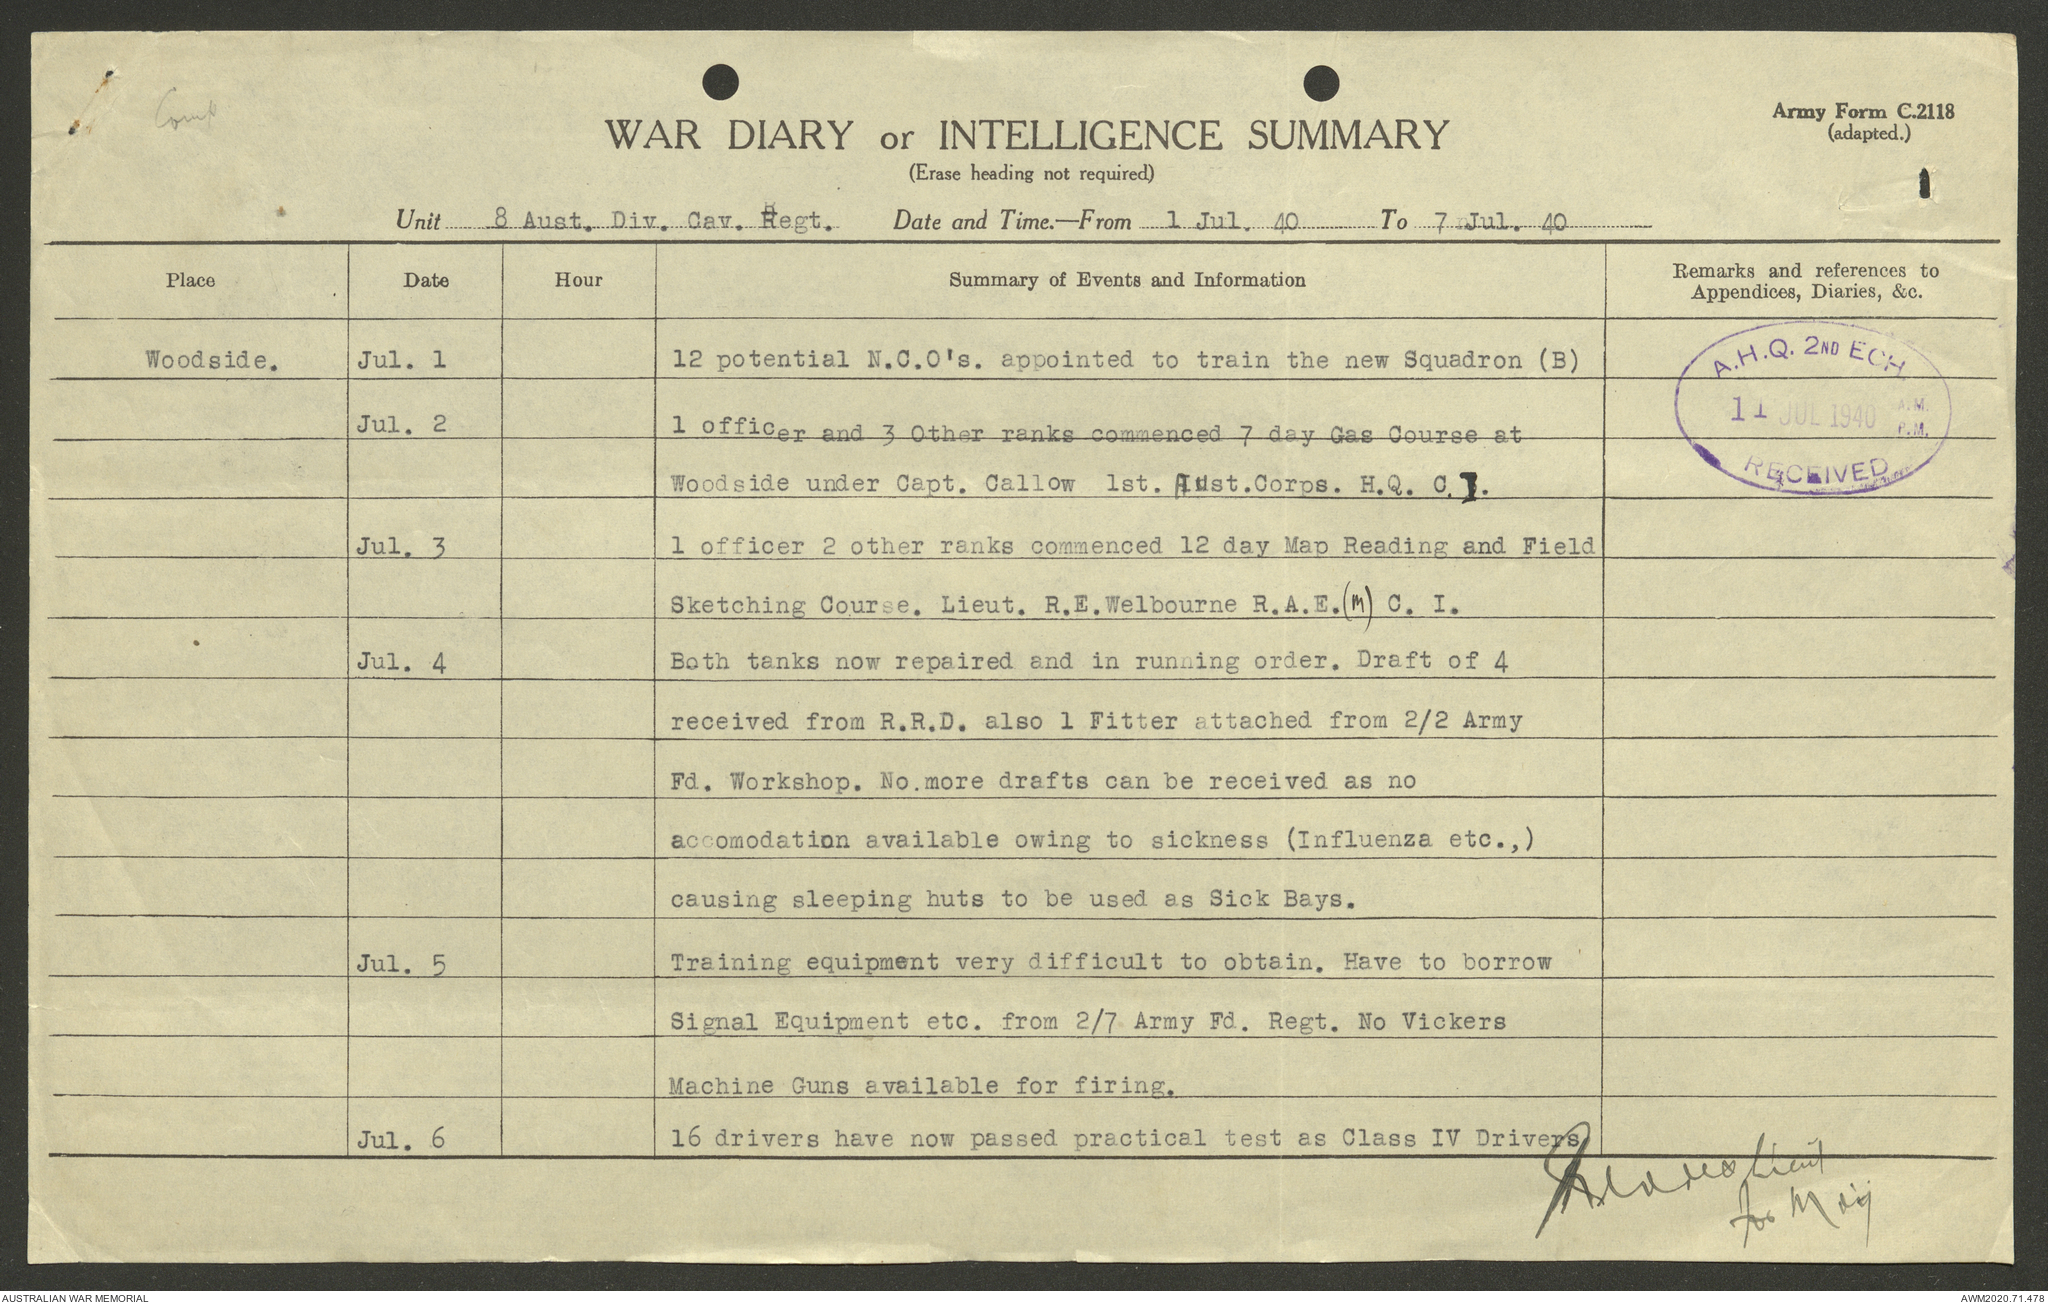 Comp
Army Form C.2118
(adapted.)
WAR DIARY or INTELLIGENCE SUMMARY
(Erase heading not required)
1
Unit 8 Aust. Div. Cav. Regt. Date and Time.—From 1 Jul. 40 To 7 Jul. 40
Place Date Hour Summary of Events and Information Remarks and references to
Appendices, Diaries, &c.
Woodside. Jul. 1 12 potential N.C.O's. appointed to train the new Squadron (B)
Jul. 2 1 officer and 3 Other ranks commenced 7 day Gas Course at
Woodside under Capt. Callow 1st. Aust.Corps. H.Q. C.I.
Jul. 3 1 officer 2 other ranks commenced 12 day Map Reading and Field
Sketching Course. Lieut. R.E.Welbourne R.A.E.(M) C. I.
Jul. 4 Both tanks now repaired and in running order. Draft of 4
received from R.R.D. also 1 Fitter attached from 2/2 Army
Fd. Workshop. No.more drafts can be received as no
accomodation available owing to sickness (Influenza etc.,)
causing sleeping huts to be used as Sick Bays.
Jul. 5 Training equipment very difficult to obtain. Have to borrow
Signal Equipment etc. from 2/7 Army Fd. Regt. No Vickers
Machine Guns available for firing.
Jul. 6 16 drivers have now passed practical test as Class IV Drivers
A.H.Q. 2ND ECH.
11 JUL 1940 A.M.
P.M.
RECEIVED
Lieut
for Maj
AUSTRALIAN WAR MEMORIAL
AWM2020.71.478